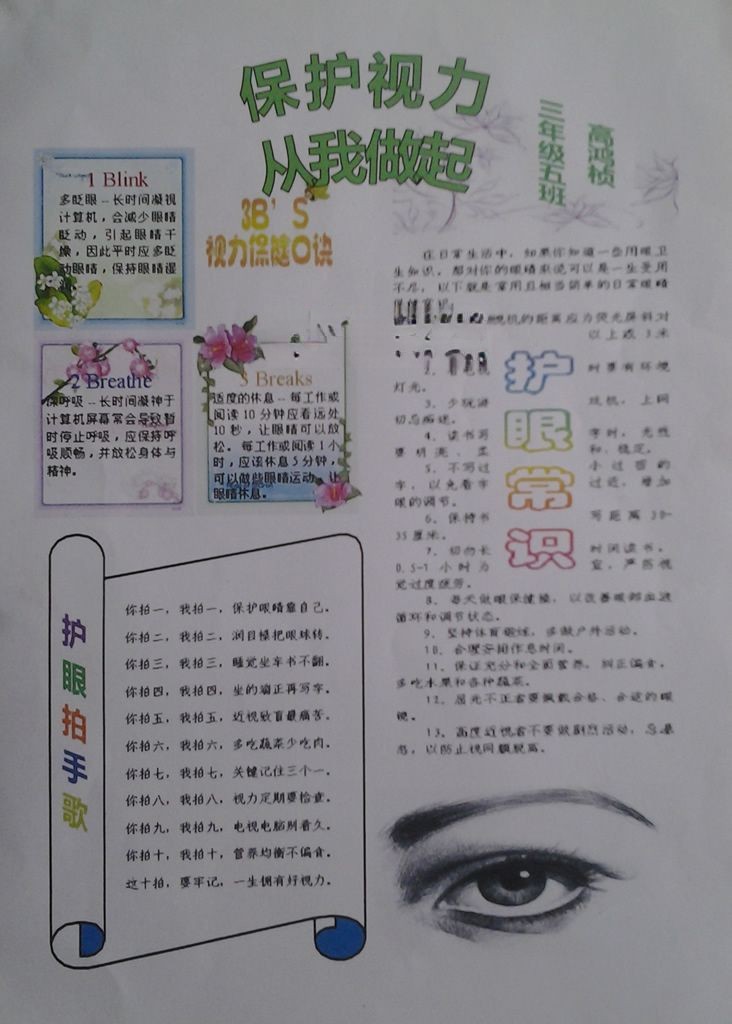 保护视力
从我做起
三年级五班
高鸿桢
3B'S
视力保健口诀
1 Blink
多眨眼－长时间凝视
计算机，会减少眼睛
眨动，引起眼睛干
燥，因此平时应多眨
动眼睛，保持眼睛湿
2 Breathe
深呼吸－长时间凝神于
计算机屏幕常会导致暂
时停止呼吸，应保持呼
吸顺畅，并放松身体与
精神。
3 Breaks
适度的休息－每工作或
阅读10分钟应看远处
10秒，让眼睛可以放
松。每工作或阅读1小
时，应该休息5分钟，
可以做些眼睛运动，让
眼睛休息。
护眼拍手歌
你拍一，我拍一，保护眼睛靠自己。
你拍二，我拍二，润目操把眼球转。
你拍三，我拍三，睡觉坐车书不翻。
你拍四，我拍四，坐的端正再写字。
你拍五，我拍五，近视致盲最痛苦。
你拍六，我拍六，多吃蔬菜少吃肉。
你拍七，我拍七，关键记住三个一。
你拍八，我拍八，视力定期要检查。
你拍九，我拍九，电视电脑别看久。
你拍十，我拍十，营养均衡不偏食。
这十拍，要牢记，一生拥有好视力。
护眼常识
在日常生活中，如果你知道一些用眼卫
生知识，那对你的眼睛来说可以是一生受用
不尽，以下就是常用且相当简单的日常眼睛
视机的距离应为荧光屏斜对
以上或3米
时要有环境
灯光。
3、少玩游 戏机，上网
切忌痴迷。
4、读书写 字时，光线
要明亮、柔 和、稳定。
5、不写过 小过密的
字，以免看字 过近，增加
眼的调节。
6、保持书 写距离30-
35厘米。
7、切勿长 时间读书，
0.5-1小时为 宜，严防视
觉过度疲劳。
8、每天做眼保健操，以改善眼部血液
循环和调节状态。
9、坚持体育锻炼，多做户外活动。
10、合理安排作息时间。
11、保证充分和全面营养，纠正偏食，
多吃水果和各种蔬菜。
12、屈光不正者要佩戴合格、合适的眼
镜。
13、高度近视者不要做剧烈活动，忌暴
力，以防止视网膜脱离。